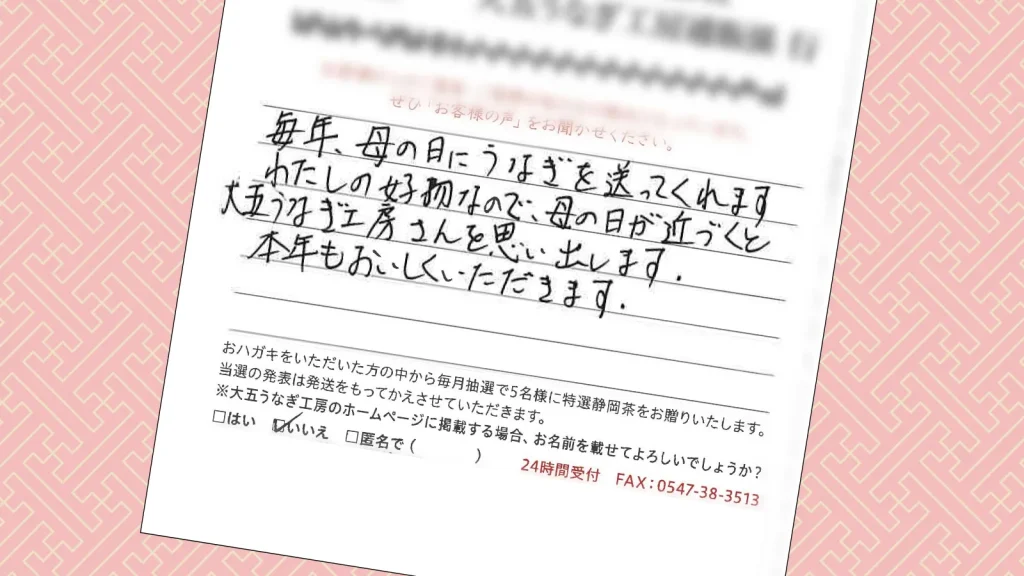 大五うなぎ工房通販係 行
ぜひ「お客様の声」をお聞かせください。
毎年、母の日にうなぎを送ってくれます
わたしの好物なので、母の日が近づくと
大五うなぎ工房さんを思い出します.
本年もおいしくいただきます.
おハガキをいただいた方の中から毎月抽選で5名様に特選静岡茶をお贈りいたします。
当選の発表は発送をもってかえさせていただきます。
※大五うなぎ工房のホームページに掲載する場合、お名前を載せてよろしいでしょうか?
□はい ☑いいえ □匿名で( )
24時間受付 FAX:0547-38-3513